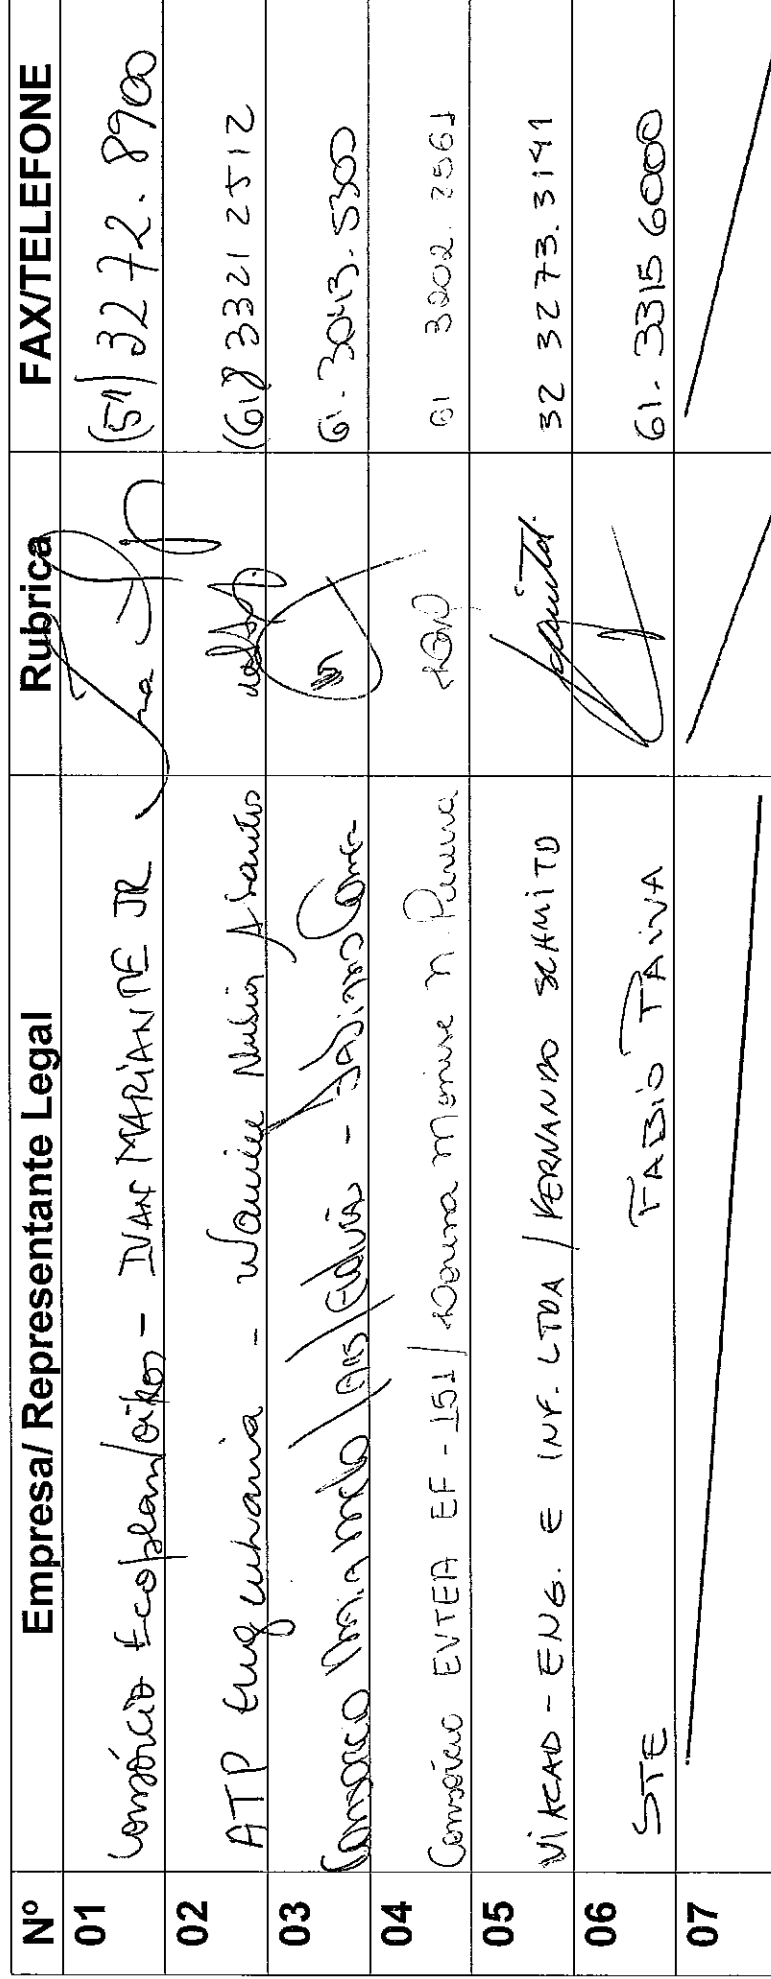 Nº Empresa/ Representante Legal Rubrica FAX/TELEFONE
01 Consórcio Ecoplan/Oikos - IVAN MARIANTE JR (51) 3272.8900
02 ATP Engenharia - Santos (61) 3321 2512
03 61.3043.5300
04 Consórcio EVTEA EF-151 / N. 61 3202.2561
05 VIACAD - ENG. E INF. LTDA / FERNANDO SCHMITD 32 3273.3141
06 STE FABIO PAIVA 61.3315 6000
07